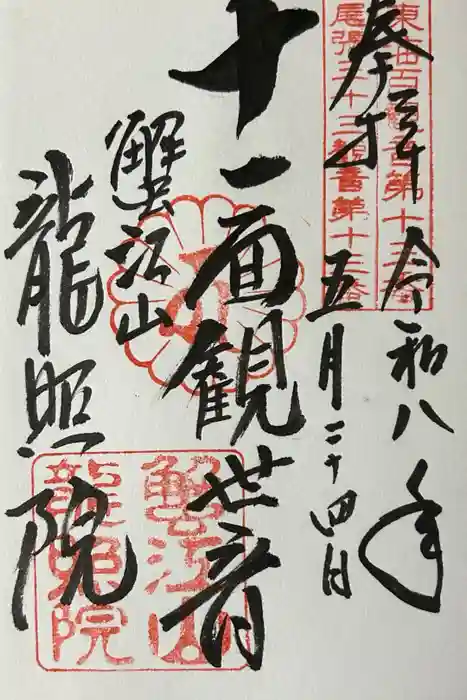 東海百観音第十三番
尾張三十三観音第十三番
奉拝
令和八年
五月二十四日
十一面観世音
蟹江山
龍照院
蟹江山
龍照院